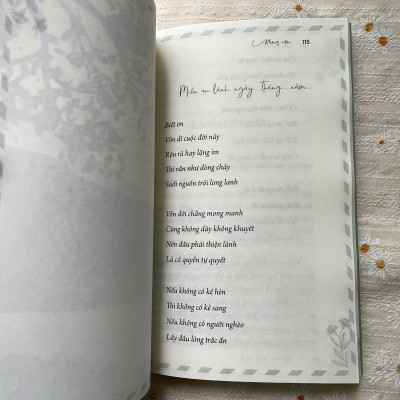 115
Miền an lành ngày tháng năm...
Biết ơn
Vốn dĩ cuộc đời này
Rộn rã hay lặng im
Thì vẫn như dòng chảy
Suối nguồn trôi long lanh
Vốn đời chẳng mong manh
Cũng không dày không khuyết
Nên đâu phải thiện lành
Là có quyền tự quyết
Nếu không có kẻ hèn
Thì không có kẻ sang
Nếu không có người nghèo
Lấy đâu lòng trắc ẩn